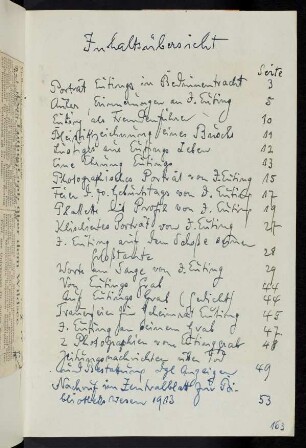 Inhaltsübersicht
Seite
Porträt Eutings in Beduinentracht 3
Erinnerungen an J. Euting 5
Euting als Fremdenführer 10
Bleistiftzeichnung eines Baches 11
Lustiges aus Eutings Leben 12
Eine Ehrung Eutings 13
Photographisches Porträt von J. Euting 15
Feier d. 70. Geburtstags von J. Euting 17
Plakette Profil von J. Euting 19
Porträt von J. Euting
J. Euting auf dem Schoße seiner
Großtante 28
Worte am Sarge von J. Euting 29
Von Eutings Grab 44
Auf Eutings Grab (Gedicht) 44
Trauerfeier für Geheimrat Euting 45
J. Euting an seinem Grab 47
2 Photographien vom Eutinggrab 48
Zeitungsnachrichten über Tod
und Bestattung, Anzeigen 49
Nachruf im Zentralblatt für Bi-
bliothekswesen 1913 53
163